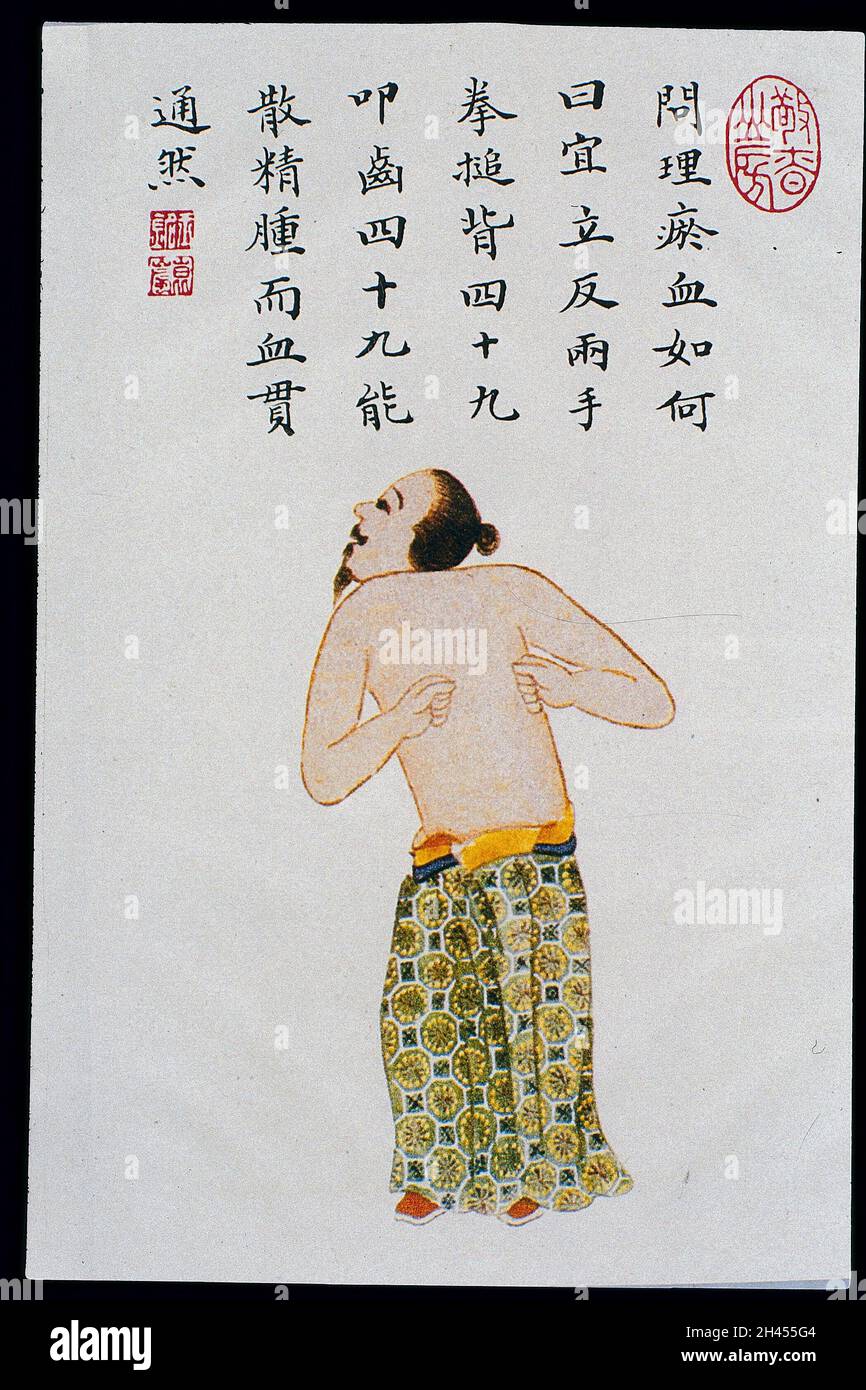 問理瘀血如何
曰宜立反兩手
拳搥背四十九
叩齒四十九能
散精腫而血貫
通然
alamy
Image ID: 2H455G4
www.alamy.com